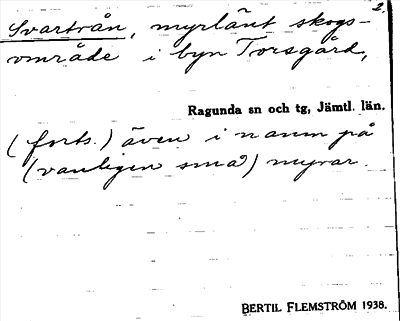 2.
Svartrån, myrlänt skogs-
område i byn Torsgård,
Ragunda sn och tg, Jämtl. län.
(forts.) även i namn på
(vanligen små) myrar.
BERTIL FLEMSTRÖM 1938.